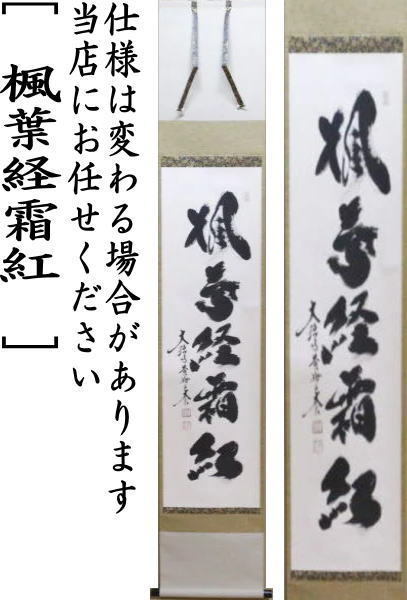 仕様は変わる場合があります
当店にお任せください
[ 楓葉経霜紅 ]
楓葉経霜紅
楓葉経霜紅